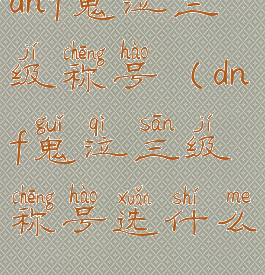 dnf鬼泣三
jí chēng hào
级称号（dn
guǐ qì sān jí
f鬼泣三级
chēng hào xuǎn shí me
称号选什么